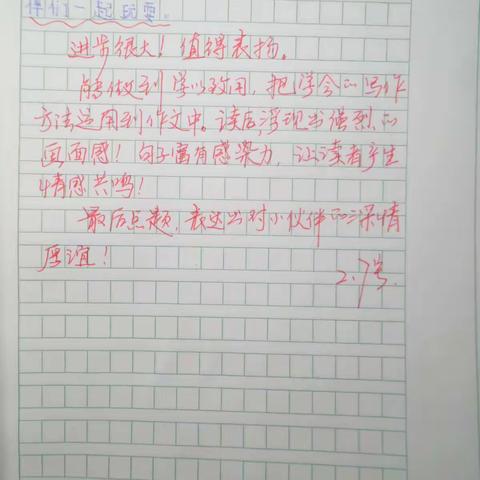 伴们一起玩耍。
进步很大！值得表扬。
能够做到学以致用，把学会的写作
方法运用到作文中。读后浮现出强烈的
画面感！句子富有感染力，让读者产生
情感共鸣！
最后点题，表达出对小伙伴的深情
厚谊！
2.7号.